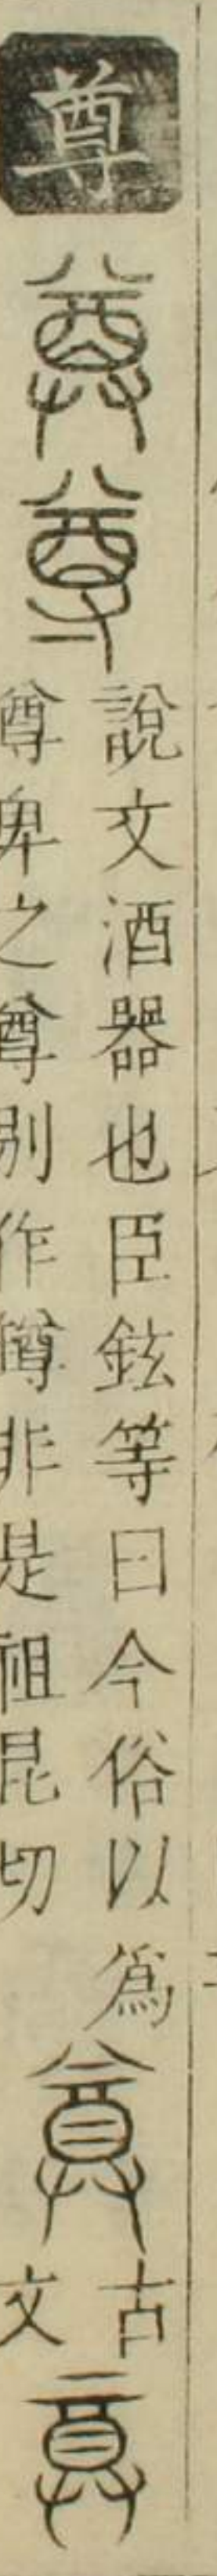 尊
說文酒器也臣鉉等曰今俗以爲
尊卑之尊別作罇非是祖昆切
古
文